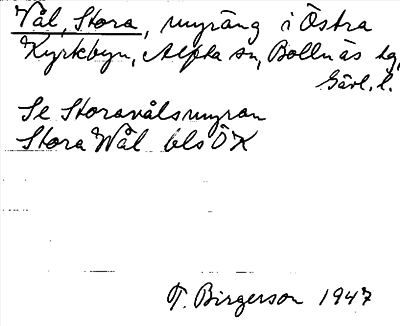 Vål, Stora, myräng i Östra
Kyrkbyn, Alfta sn, Bollnäs tg,
Gävl. l.
Se Storavålsmyran
Stora Wål bls ÖK
T. Birgerson 1947